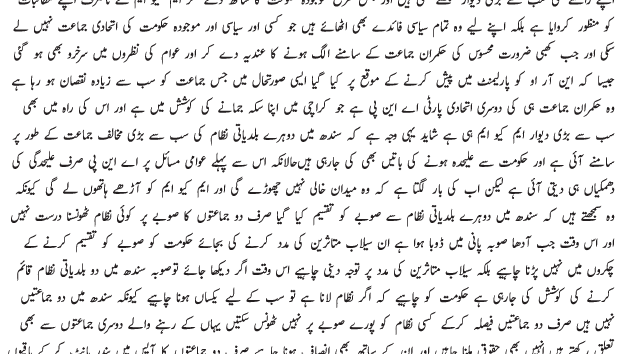 کو منظور کروایا ہے بلکہ اپنے لیے وہ تمام سیاسی فائدے بھی اٹھائے ہیں جو کسی اور سیاسی اور موجودہ حکومت کی اتحادی جماعت نہیں لے
سکی اور جب کبھی ضرورت محسوس کی حکمران جماعت کے سامنے الگ ہونے کا عندیہ دے کر اور عوام کی نظروں میں سرخرو بھی ہو گی
جیسا کہ این آر او کو پارلیمنٹ میں پیش کرنے کے موقع پر کیا گیا ایسی صورتحال میں جس جماعت کو سب سے زیادہ نقصان ہو رہا ہے
وہ حکمران جماعت ہی کی دوسری اتحادی پارٹی اے این پی ہے جو کراچی میں اپنا سکہ جمانے کی کوشش میں ہے اور اس کی راہ میں بھی
سب سے بڑی دیوار ایم کیو ایم ہی ہے شاید یہی وجہ ہے کہ سندھ میں دوہرے بلدیاتی نظام کی سب سے بڑی مخالف جماعت کے طور پر
سامنے آئی ہے اور حکومت سے علیحدہ ہونے کی باتیں بھی کی جارہی ہیں حالانکہ اس سے پہلے عوامی مسائل پر اے این پی صرف علیحدگی کی
دھمکیاں ہی دیتی آئی ہے لیکن اب کی بار لگتا ہے کہ وہ میدان خالی نہیں چھوڑے گی اور ایم کیو ایم کو آڑھے ہاتھوں لے گی کیونکہ
وہ سمجھتے ہیں کہ سندھ میں دوہرے بلدیاتی نظام سے صوبے کو تقسیم کیا گیا صرف دو جماعتوں کا صوبے پر کوئی نظام ٹھونسنا درست نہیں
اور اس وقت جب آدھا صوبہ پانی میں ڈوبا ہوا ہے ان سیلاب متاثرین کی مدد کرنے کی بجائے حکومت کو صوبے کو تقسیم کرنے کے
چکروں میں نہیں پڑنا چاہیے بلکہ سیلاب متاثرین کی مدد پر توجہ دینی چاہیے اس وقت اگر دیکھا جائے توصوبہ سندھ میں دو بلدیاتی نظام قائم
کرنے کی کوشش کی جارہی ہے حکومت کو چاہیے کہ اگر نظام لانا ہے تو سب کے لیے یکساں ہونا چاہیے کیونکہ سندھ میں دو جماعتیں
نہیں ہیں صرف دو جماعتیں فیصلہ کرکے کسی نظام کو پورے صوبے پر نہیں ٹھونس سکتیں یہاں کے رہنے والے دوسری جماعتوں سے بھی
تعلق رکھتے ہیں انہیں بھی حقوق ملنا چاہیں اور ان کے ساتھ بھی انصاف ہونا چاہیے صرف دو جماعتوں کا آپس میں بندر بانٹ کر کے باقیوں